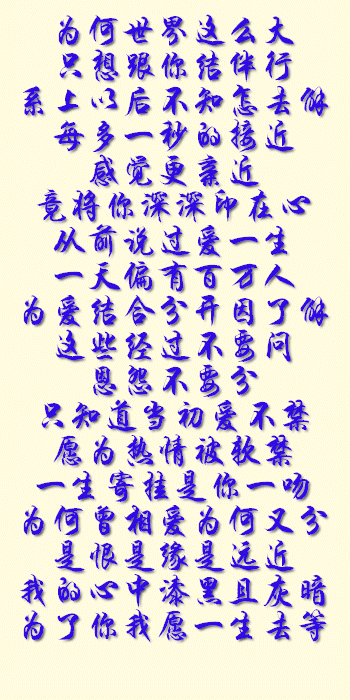 为何世界这么大
只想跟你结伴行
系上以后不知怎去解
每多一秒的接近
感觉更亲近
竟将你深深印在心
从前说过爱一生
一天偏有百万人
为爱结合分开因了解
这些经过不要问
恩怨不要分
只知道当初爱不禁
愿为热情被软禁
一生寄挂是你一吻
为何曾相爱为何又分
是恨是缘是远近
我的心中漆黑且灰暗
为了你我愿一生去等